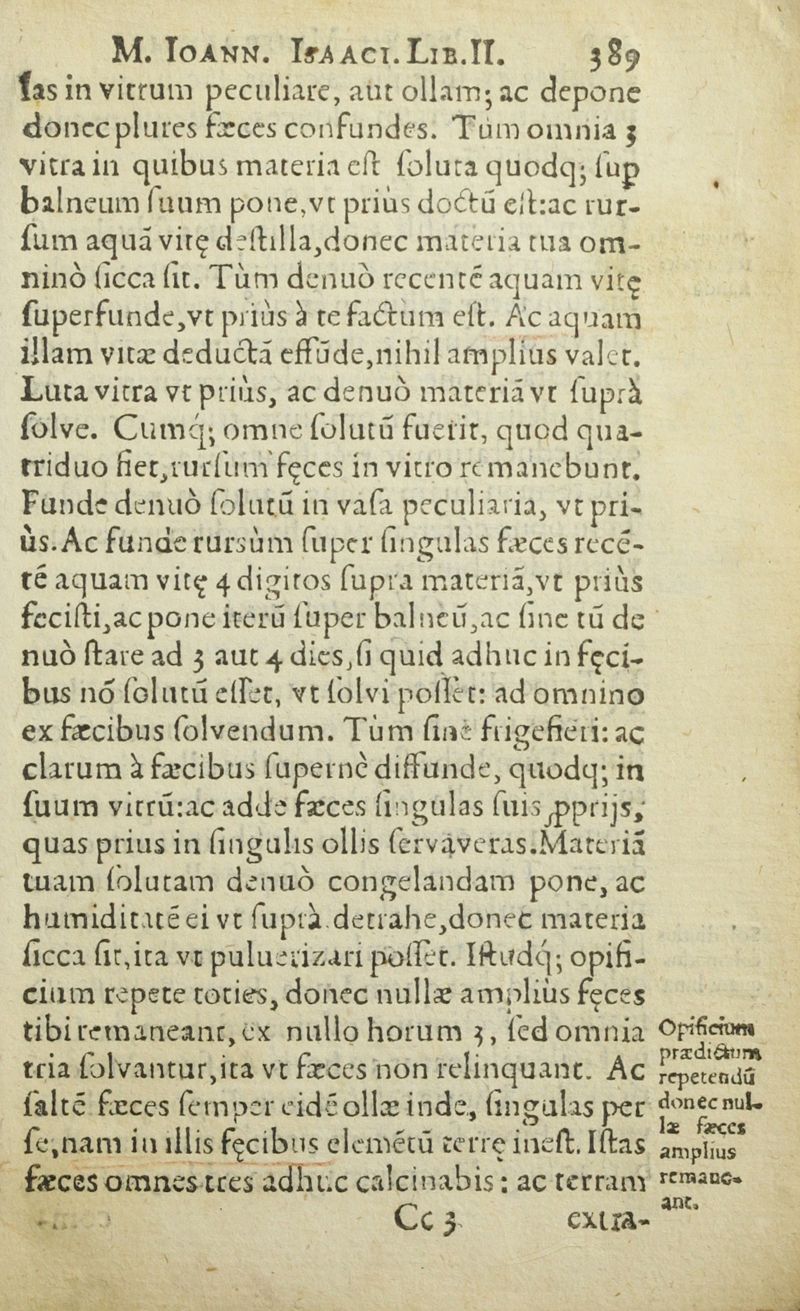 M. IOANN. ISAACI. LIB. II. 389
ſas in vitrum peculiare, aut ollam; ac depone
donec plures fæces confundes. Tùm omnia 3
vitra in quibus materia eſt ſoluta quodq; ſup
balneum ſuum pone, vt priùs doctũ eſt: ac rur-
ſum aquã vitę deſtilla, donec materia tua om-
ninò ſicca ſit. Tùm denuò recentẽ aquam vitę
ſuperfunde, vt priùs à te factum eſt. Ac aquam
illam vitæ deductã effũde, nihil amplius valet.
Luta vitra vt priùs, ac denuò materiã vt ſuprà
ſolve. Cumq́; omne ſolutũ fuerit, quod qua-
triduo fiet, rurſum fęces in vitro remanebunt.
Funde denuò ſolutũ in vaſa peculiaria, vt pri-
ùs. Ac funde rursùm ſuper ſingulas fæces recẽ-
tẽ aquam vitę 4 digitos ſupra materiã, vt priùs
feciſti, ac pone iterũ ſuper balneũ, ac ſine tũ de
nuò ſtare ad 3 aut 4 dies, ſi quid adhuc in fęci-
bus nõ ſolutũ eſſet, vt ſolvi poſſet: ad omnino
ex fæcibus ſolvendum. Tùm ſine frigefieri: ac
clarum à fæcibus ſupernè diffunde, quodq; in
ſuum vitrũ: ac adde fæces ſingulas ſuis ꝓprijs,
quas prius in ſingulis ollis ſervaveras. Materiã
tuam ſolutam denuò congelandam pone, ac
humiditatẽ ei vt ſuprà detrahe, donec materia
ſicca ſit, ita vt puluerizari poſſet. Iſtudq́; opifi-
cium repete toties, donec nullæ amplius fęces
tibi remaneant, ex nullo horum 3, ſed omnia
tria ſolvantur, ita vt fæces non relinquant. Ac
ſaltẽ fæces ſemper eidẽ ollæ inde, ſingulas per
ſe, nam in illis fęcibus elemẽtũ terrę ineſt. Iſtas
fæces omnes tres adhuc calcinabis: ac terram
Opificium
prædictum
repetendũ
donec nul-
læ fæces
amplius
remane-
ant.
Cc 3 extra-